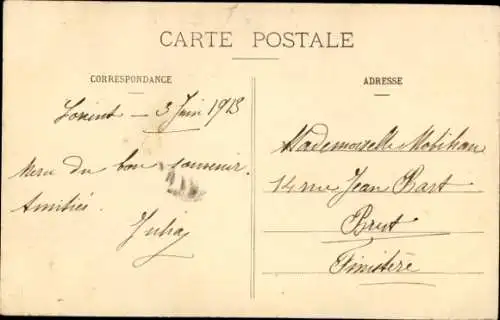 CARTE POSTALE
CORRESPONDANCE
Lorient — 3 Juin 1913
Merci du bon souvenir.
Amitiés.
Julia
ADRESSE
Mademoiselle
14 rue Jean Bart
Brest
Finistère